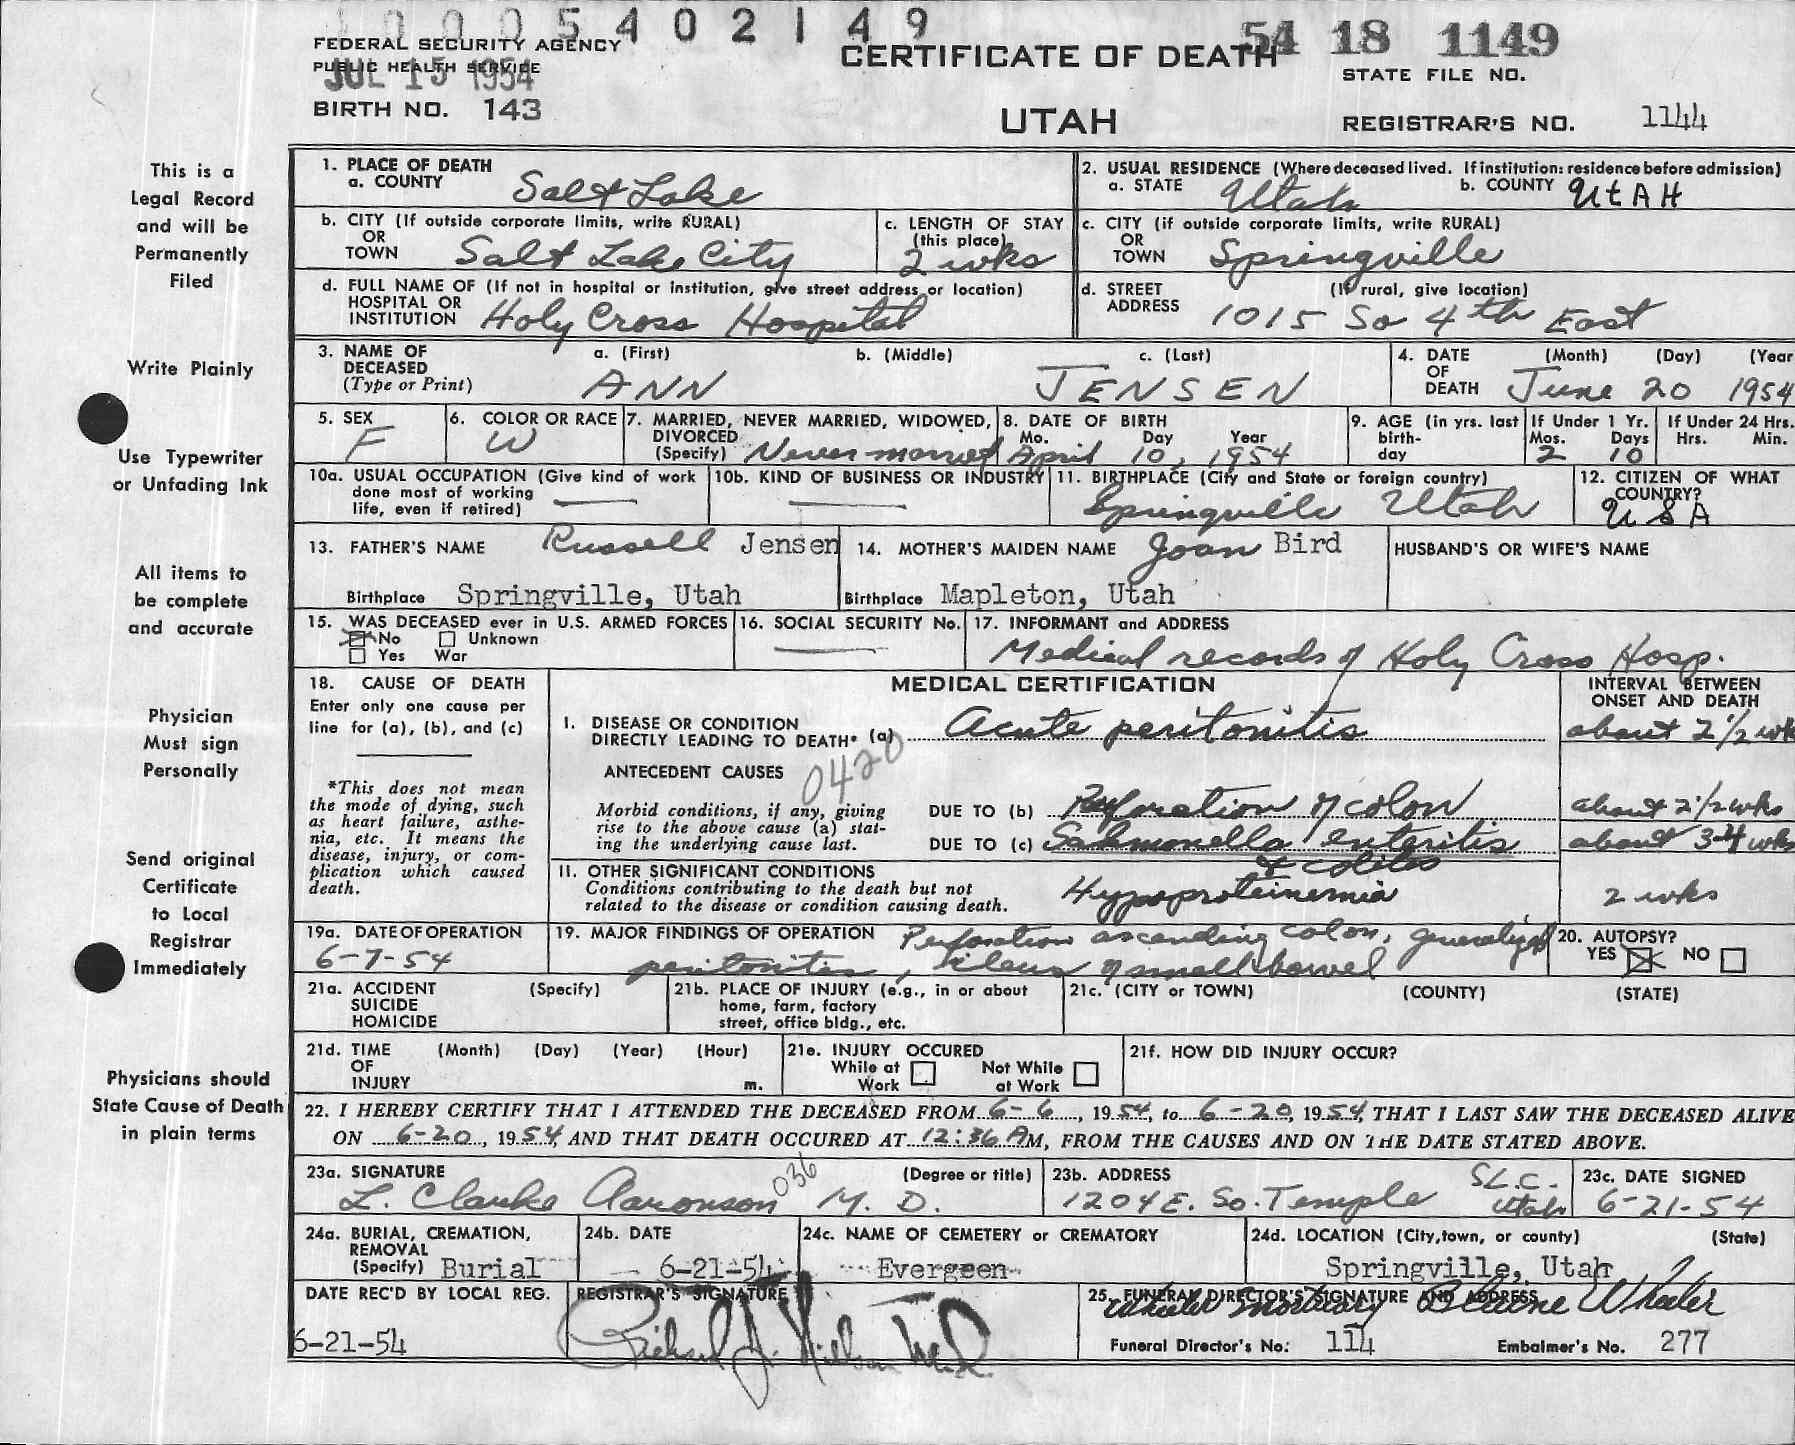 1 0 0 0 5 4 0 2 1 4 9
54 18 1149
FEDERAL SECURITY AGENCY
PUBLIC HEALTH SERVICE
JUL 15 1954
BIRTH NO. 143
CERTIFICATE OF DEATH
UTAH
STATE FILE NO.
REGISTRAR'S NO. 1144
This is a
Legal Record
and will be
Permanently
Filed
Write Plainly
Use Typewriter
or Unfading Ink
All items to
be complete
and accurate
Physician
Must sign
Personally
Send original
Certificate
to Local
Registrar
Immediately
Physicians should
State Cause of Death
in plain terms
1. PLACE OF DEATH
a. COUNTY Salt Lake
2. USUAL RESIDENCE (Where deceased lived. If institution: residence before admission)
a. STATE Utah b. COUNTY UtAH
b. CITY (If outside corporate limits, write RURAL)
OR
TOWN Salt Lake City
c. LENGTH OF STAY
(this place)
2 wks
c. CITY (if outside corporate limits, write RURAL)
OR
TOWN Springville
d. FULL NAME OF (If not in hospital or institution, give street address or location)
HOSPITAL OR
INSTITUTION Holy Cross Hospital
d. STREET (If rural, give location)
ADDRESS 1015 So 4th East
3. NAME OF
DECEASED
(Type or Print)
a. (First) b. (Middle) c. (Last)
ANN JENSEN
4. DATE (Month) (Day) (Year
OF
DEATH June 20 1954
5. SEX
F
6. COLOR OR RACE
W
7. MARRIED, NEVER MARRIED, WIDOWED,
DIVORCED
(Specify) Never married
8. DATE OF BIRTH
Mo. Day Year
April 10, 1954
9. AGE (in yrs. last
birth-
day
If Under 1 Yr.
Mos. Days
2 10
If Under 24 Hrs.
Hrs. Min.
10a. USUAL OCCUPATION (Give kind of work
done most of working
life, even if retired)
10b. KIND OF BUSINESS OR INDUSTRY
11. BIRTHPLACE (City and State or foreign country)
Springville Utah
12. CITIZEN OF WHAT
COUNTRY?
USA
13. FATHER'S NAME Russell Jensen
Birthplace Springville, Utah
14. MOTHER'S MAIDEN NAME Joan Bird
Birthplace Mapleton, Utah
HUSBAND'S OR WIFE'S NAME
15. WAS DECEASED ever in U.S. ARMED FORCES
No Unknown
Yes War
16. SOCIAL SECURITY No.
17. INFORMANT and ADDRESS
Medical records of Holy Cross Hosp.
18. CAUSE OF DEATH
Enter only one cause per
line for (a), (b), and (c)
*This does not mean
the mode of dying, such
as heart failure, asthe-
nia, etc. It means the
disease, injury, or com-
plication which caused
death.
MEDICAL CERTIFICATION
INTERVAL BETWEEN
ONSET AND DEATH
I. DISEASE OR CONDITION
DIRECTLY LEADING TO DEATH* (a) Acute peritonitis about 2 1/2 wk
ANTECEDENT CAUSES 0420
Morbid conditions, if any, giving
rise to the above cause (a) stat-
ing the underlying cause last.
DUE TO (b) Perforation of colon about 2 1/2 wks
DUE TO (c) Salmonella enteritis about 3-4 wks
& colitis
II. OTHER SIGNIFICANT CONDITIONS
Conditions contributing to the death but not
related to the disease or condition causing death.
Hypoproteinemia 2 wks
19a. DATE OF OPERATION
6-7-54
19. MAJOR FINDINGS OF OPERATION Perforation ascending colon, generalized
peritonitis, ileus of small bowel
20. AUTOPSY?
YES NO
21a. ACCIDENT (Specify)
SUICIDE
HOMICIDE
21b. PLACE OF INJURY (e.g., in or about
home, farm, factory
street, office bldg., etc.
21c. (CITY or TOWN) (COUNTY) (STATE)
21d. TIME (Month) (Day) (Year) (Hour)
OF
INJURY m.
21e. INJURY OCCURED
While at Work Not While at Work
21f. HOW DID INJURY OCCUR?
22. I HEREBY CERTIFY THAT I ATTENDED THE DECEASED FROM 6-6, 1954, to 6-20, 1954, THAT I LAST SAW THE DECEASED ALIVE
ON 6-20, 1954, AND THAT DEATH OCCURED AT 12:36 AM, FROM THE CAUSES AND ON THE DATE STATED ABOVE.
23a. SIGNATURE (Degree or title)
L. Clarke Aaronson 036 M. D.
23b. ADDRESS
1204 E. So. Temple S.L.C. Utah
23c. DATE SIGNED
6-21-54
24a. BURIAL, CREMATION,
REMOVAL
(Specify) Burial
24b. DATE
6-21-54
24c. NAME OF CEMETERY OR CREMATORY
Evergeen
24d. LOCATION (City, town, or county) (State)
Springville, Utah
DATE REC'D BY LOCAL REG.
6-21-54
REGISTRAR'S SIGNATURE
25. FUNERAL DIRECTOR'S SIGNATURE AND ADDRESS
Wheeler Mortuary Blaine Wheeler
Funeral Director's No: 114 Embalmer's No. 277